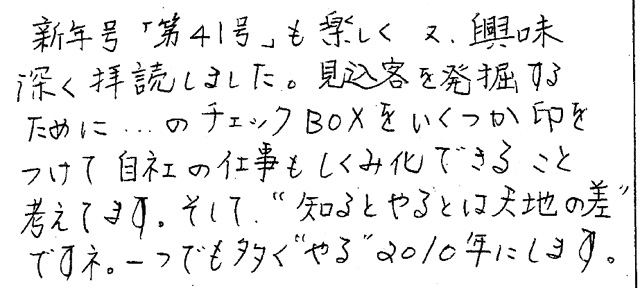 新年号「第41号」も楽しく又、興味
深く拝読しました。見込客を発掘する
ために…のチェックBOXをいくつか印を
つけて自社の仕事もしくみ化できること
考えてます。そして、“知るとやるとは天地の差”
ですネ。一つでも多く“やる”2010年にします。